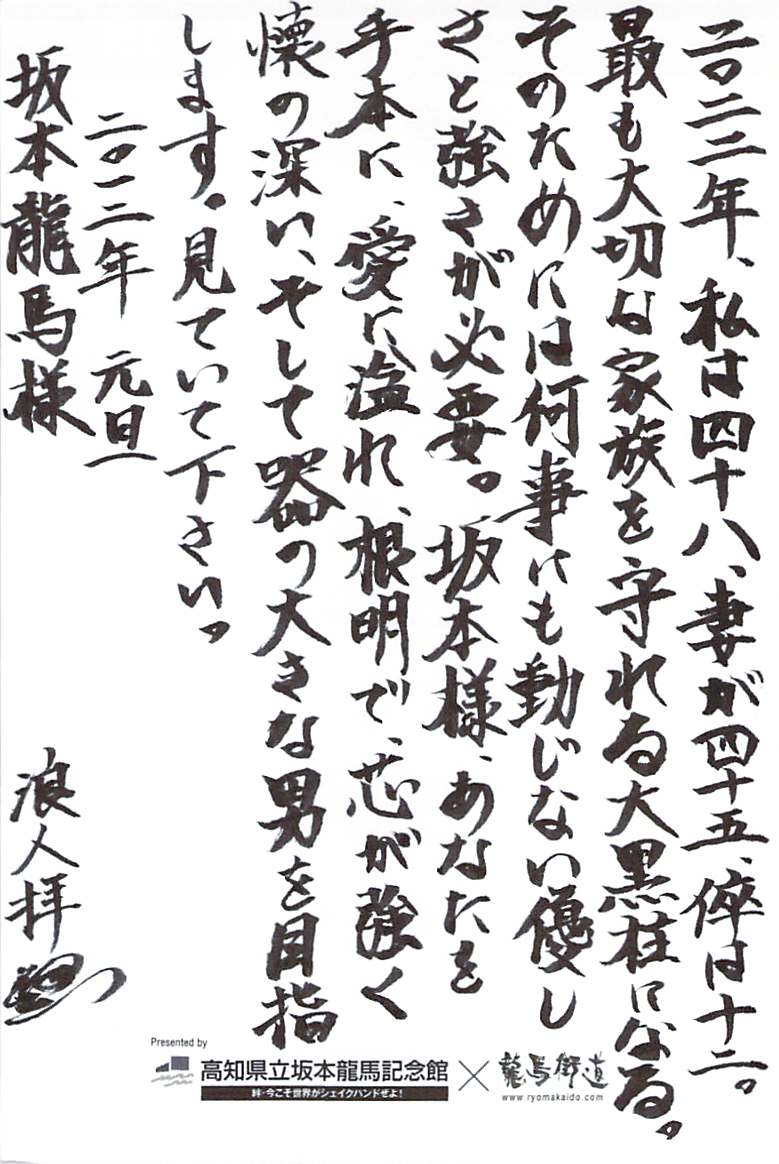 二〇二二年、私は四十八、妻が四十五、倅は十二。
最も大切な家族を守れる大黒柱になる。
そのためには何事にも動じない優し
さと強さが必要。坂本様、あなたを
手本に、愛に溢れ、根明で、芯が強く
懐の深い、そして器の大きな男を目指
します。見ていて下さい。
二〇一二年 元旦
坂本龍馬様
浪人拝
Presented by
高知県立坂本龍馬記念館
絆・今こそ世界がシェイクハンドぜよ!
×
龍馬街道
www.ryomakaido.com